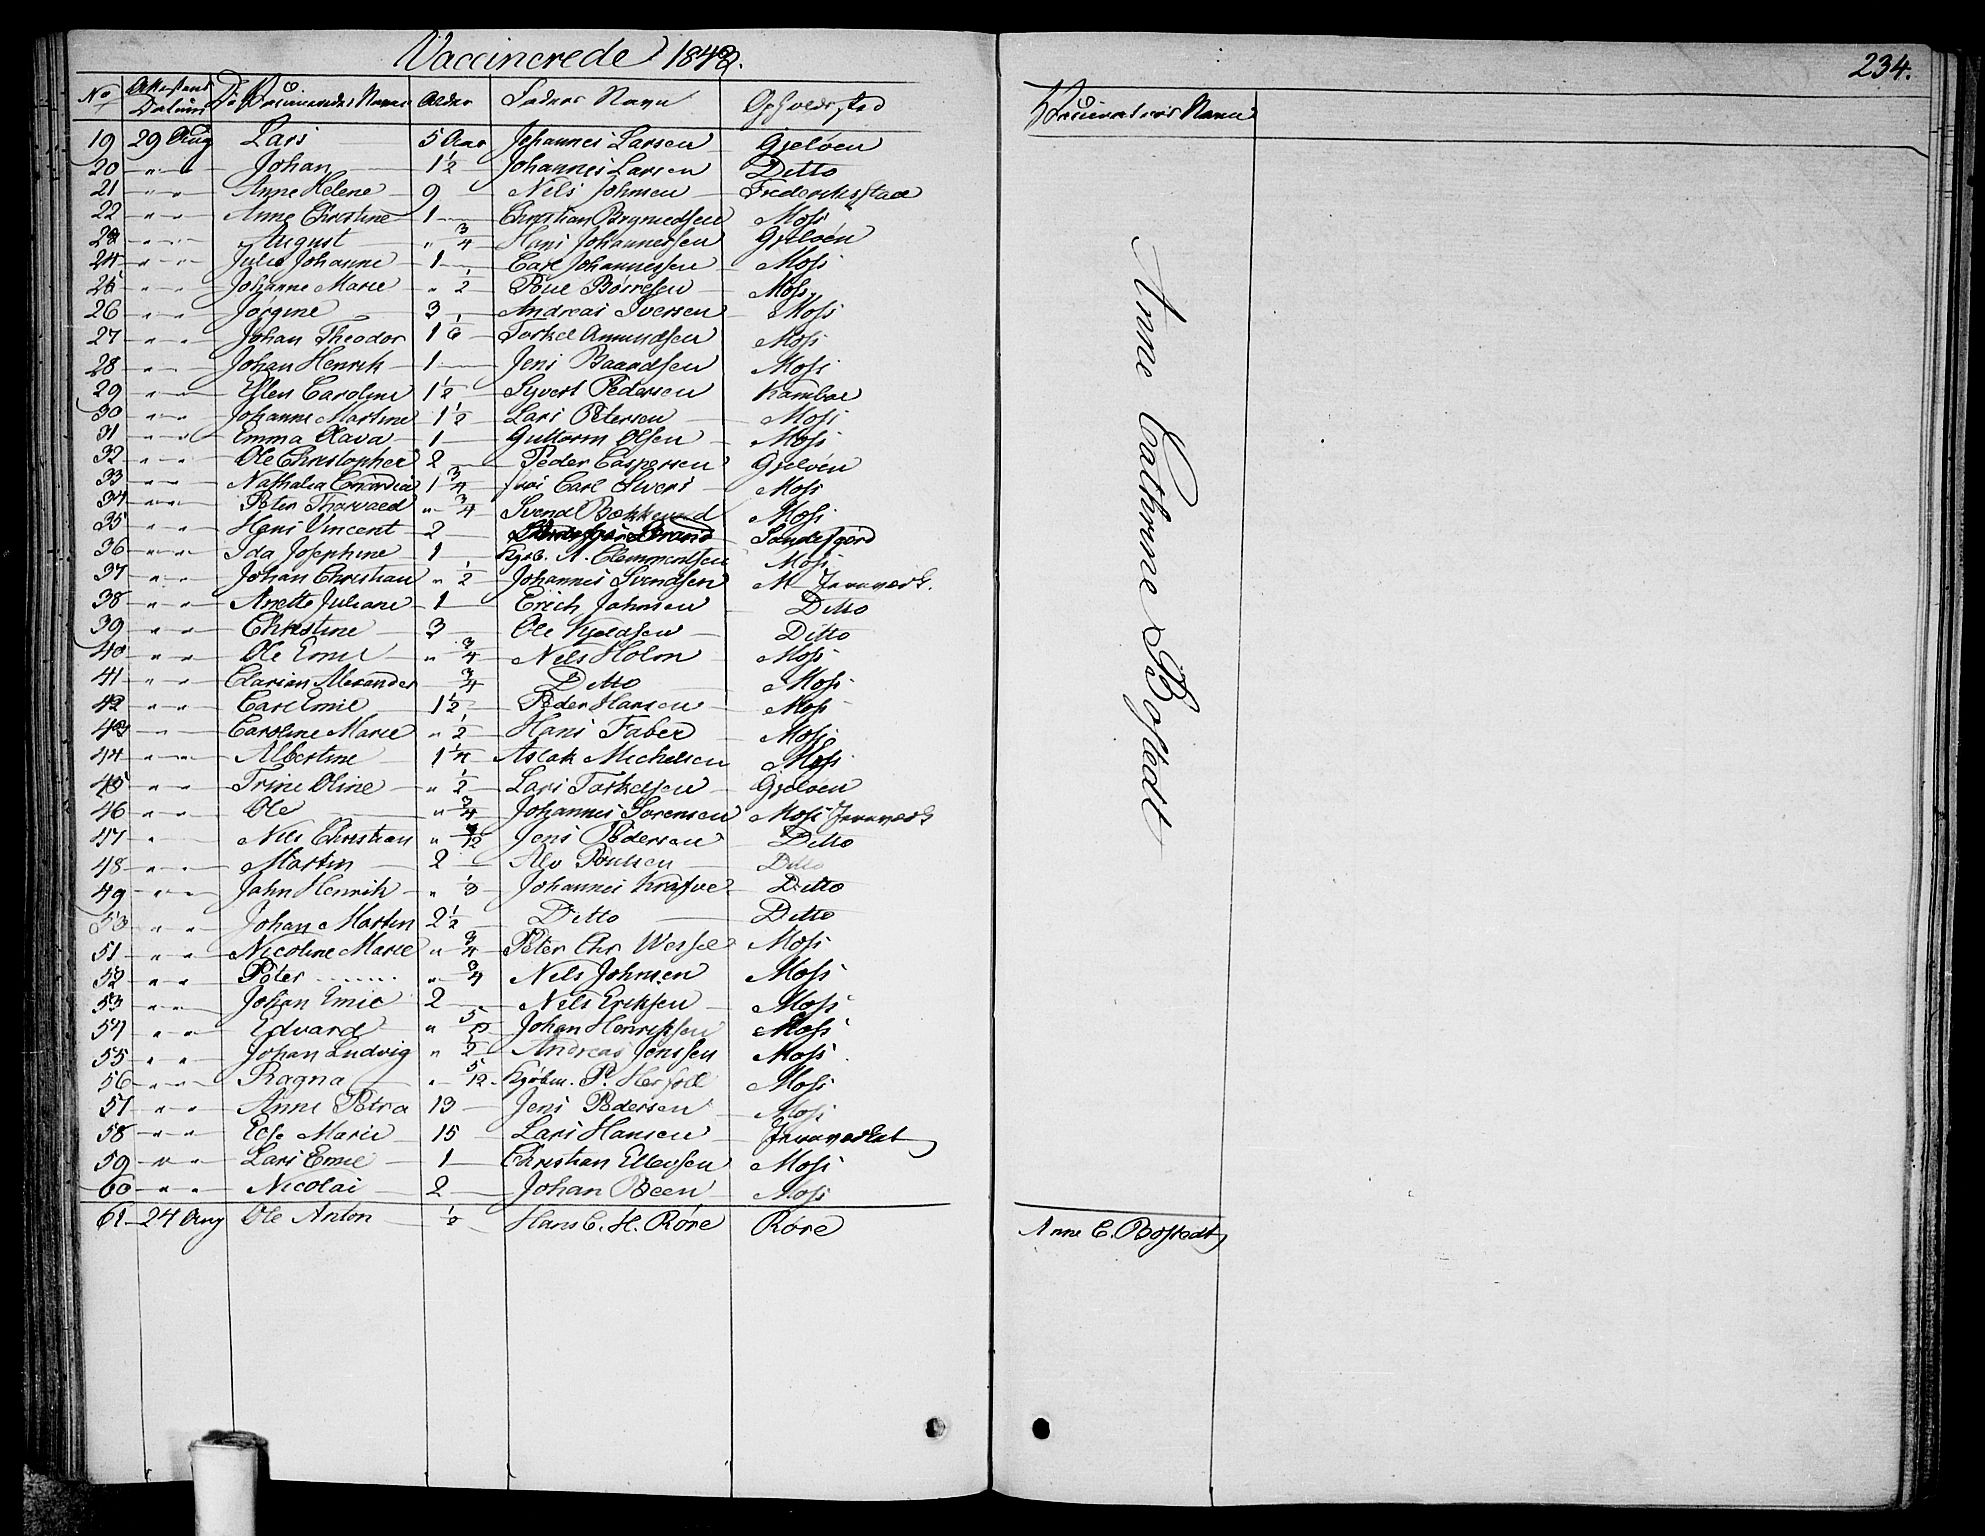 Vaccinerede 1842.
234.
No Attestens Datum De Vaccineredes Navne Alder Faders Navn Opholdssted
Vaccinatørs Navn
19 29 Aug Lars 5 Aar Johannes Larsen Gjeløen
20 " " Johan 1 1/2 Johannes Larsen Ditto
21 " " Anne Helene 9 Nils Johnsen Frederiksstad
22 " " Anne Christine 1 Christian Moss
23 " " August " 3/4 Hans Johannessen Gjeløen
24 " " Julie Johanne 1 Carl Johannessen Moss
25 " " Johanne Marie " 1/2 Poul Børresen Moss
26 " " Jørgine 3 Andreas Iversen Moss
27 " " Johan Theodor 1 1/6 Torkel Amundsen Moss
28 " " Johan Henrik 1 Jens Baardsen Moss
29 " " Ellen Caroline 1 1/2 Syvert Pedersen Kamboe
30 " " Johanne Martine 1 1/2 Lars Petersen Moss
31 " " Emma Olava 1 Guttorm Olsen Moss
32 " " Ole Christopher 2 Peder Caspersen Gjeløen
33 " " Nathalia 1 3/4 Carl Sivers Moss
34 " " Peter Thorvald " 3/4 Svend Moss
35 " " Hans Vincent 2 Brand Sandefjord
36 " " Ida Josephine 1 Kjøb. A. Clemmentsen Moss
37 " " Johan Christian " 1/2 Johannes Svendsen M Jernverk.
38 " " Anette Juliane 1 Erich Johnsen Ditto
39 " " Christine 3 Ole Kjeldsen Ditto
40 " " Ole Emil " 3/4 Nels Holm Moss
41 " " Alexander 3/4 Ditto Moss
42 " " Carl Emil 1 1/2 Peder Hansen Moss
43 " Caroline Marie " 1/2 Hans Faber Moss
44 " " Albertine 1 1/4 Aslak Michelsen Moss
45 " " Trine Oline " 1/2 Lars Torkelsen Gjeløen
46 " " Ole " 3/4 Johannes Sørensen Moss Jernverk
47 " Nils Christian " 7/12 Jens Pedersen Ditto
48 " " Martin 2 Alv Poulsen Ditto
49 " " John Henrik " 1/3 Johannes Krafve Ditto
50 " " Johan Martin 2 1/2 Ditto Ditto
51 " " Nicoline Marie " 3/4 Peter Chr Wessel Moss
52 " " Peter " 3/4 Nils Johnsen Moss
53 " " Johan Emil 2 Nels Eriksen Moss
54 " " Edvard " Johan Henriksen Moss
55 " " Johan Ludvig " 1/2 Andreas Jenssen Moss
56 " " Ragna " 5/12 Kjøbm. P. Herfoll Moss
57 " " Anne Petra 13 Jens Pedersen Moss
58 " " Else Marie 15 Lars Hansen Jernverket
59 " " Lars Emil 1 Christian Ellevsen Moss
60 " " Nicolai 2 Johan Been Moss
61 24 Aug Ole Anton 1/2 Hans C. H. Røre Røre
Anne Cathrine Bostedt
Anne C. Bostedt